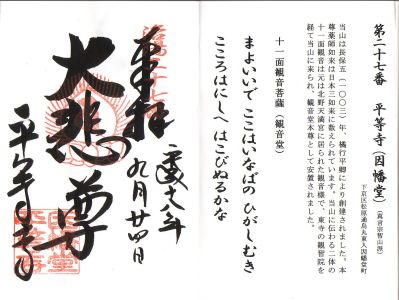 第二十七番　平等寺（因幡堂）
（真言宗智山派）
下京区松原通烏丸東入因幡堂町
当山は長保五（一〇〇三）年、橘行平卿により創建されました。本
尊薬師如来は日本三如来に数えられています。当山に伝わる二体の
十一面観音は元は北野天満宮に居られた観音様で、東寺の観智院を
経て当山に来られ、観音堂本尊として安置されました。
十一面観音菩薩（観音堂）
まよいいで ここはいなばの ひがしむき
こころはにしへ はこびぬるかな
奉拝
九月廿四日
大悲尊
平等寺